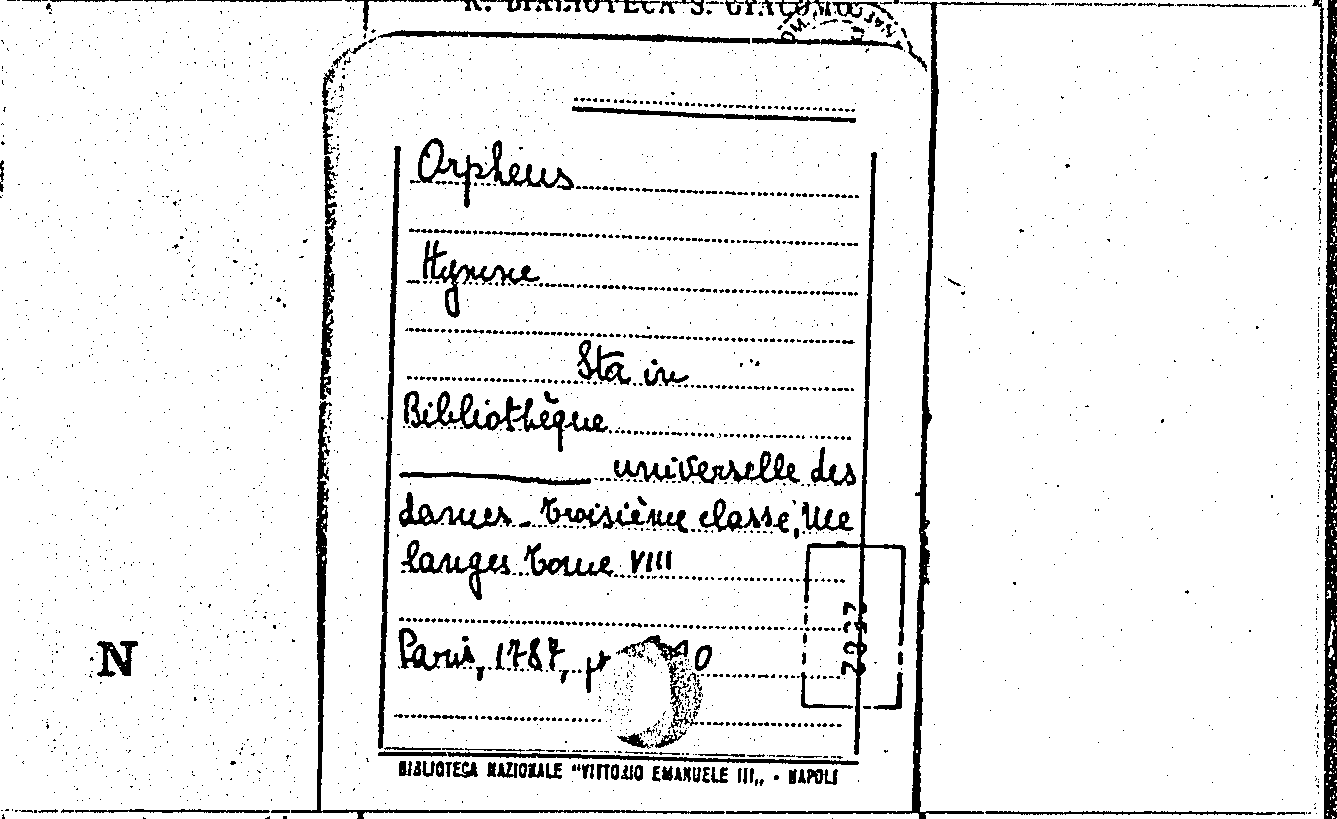 R. BIBLIOTECA S. GIACOMO
Orpheus
Hymne
Sta in
Bibliothèque
universelle des
dames - Troisième classe, Me
langes Tome VIII
Paris, 1787, p
N
BIBLIOTECA NAZIONALE "VITTORIO EMANUELE III„ - NAPOLI